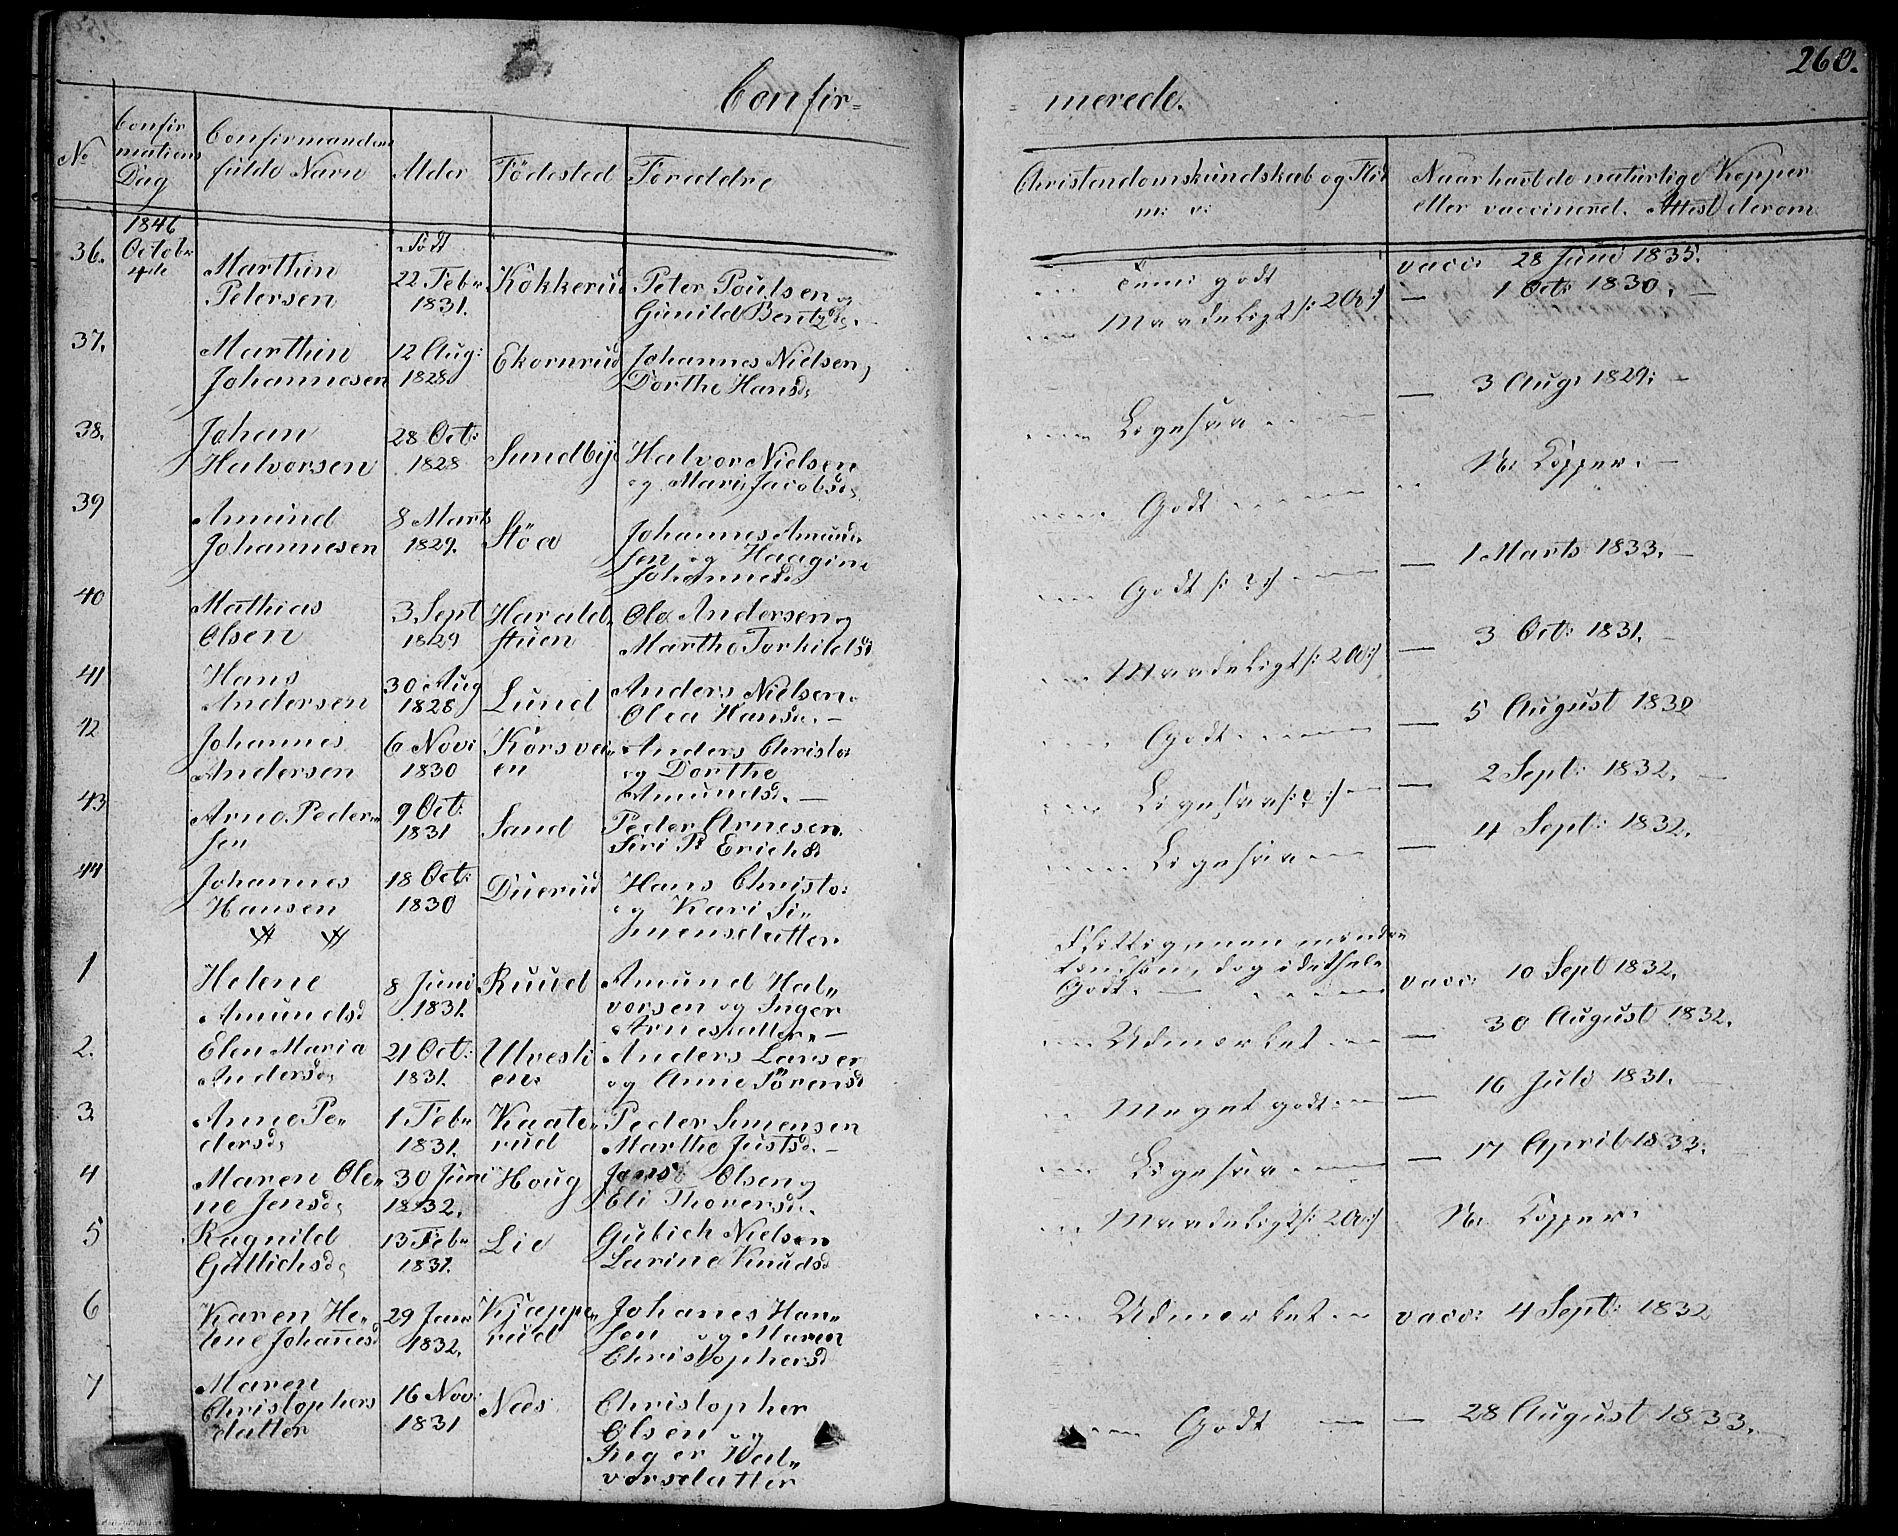 260.
Confir=
= merede.
No
Confir
mations
Dag
Confirmandens
fulde Navn
Alder
Födested
Foræddre
Christendomskundskab og Flid
m: v:
Naar havt de naturlige Kopper
eller vaccinered. Attest derom
1846
Octobr
4de
36.
Marthin
Petersen
Födt
22 Febr
1831.
Kokkerud
Peter Poulsen og
Gunild Bentzdr.
godt
vacc: 28 Juni 1835.
37.
Marthin
Johannesen
12 Aug:
1828
Ekornrud
Johannes Nielsen,
Dorthe Hansdr
Maadeligt
— 1 Oct: 1830. —
38.
Johan
Halvorsen
28 Oct:
1828
Sundbye
Halvor Nielsen
og Mari Jacobsdr
Ligesaa
— 3 Aug: 1829: —
39
Amund
Johannesen
8 Marts
1829.
Stöa
Johannes Amund-
sen og Haagine
Johannesdr
Godt
N. Kopper. —
40
Mathias
Olsen
3 Sept
1829
Harald-
stuen
Ole Andersen og
Marthe Torkildsd
Godt /: ? :/
— 1 Marts 1833. —
41
Hans
Andersen
30 Aug
1828
Lund
Anders Nielsen
Olea Hansdr. —
Maadeligt
— 3 Oct: 1831. —
42
Johannes
Andersen
6 Nov:
1830
Korsvei-
en
Anders Christo:
og Dorthe
Amundsd. —
Godt
— 5 August 1832
43
Arne Peder-
sen
9 Oct:
1831
Sand
Peder Arnesen
Siri P. Erichsd
Ligesaa /: ? :/
— 2 Sept: 1832. —
44
Johannes
Hansen
18 Oct:
1830
Duerud
Hans Christo:
og Kari Si-
mensdatter
Ligesaa
— 4 Sept: 1832.
1
Helene
Amundsd
8 Juni
1831.
Ruud
Amund Hal-
vorsen og Inger
Arnesdatter. —
dog i det hele
Godt. —
vacc: 10 Sept 1832.
2.
Elen Maria
Andersdr
21 Oct:
1831.
Ulvesli
en.
Anders Larsen
og Anne Sörensd
Udmerket
— 30 August 1832.
3.
Anne Pe-
dersdr
1 Febr
1831.
Kaate-
rud
Peder Simensen
Marthe Justsd. —
Meget godt
— 16 Juli 1831.
4
Maren Ole-
ne Jensdr
30 Juni
1832.
Houg
Jens Olsen og
Eli Thorersdr.
Ligesaa
— 17 April 1833.
5
Ragnild
Gullichsdr
13 Febr
1831.
Lie
Gulich Nielsen
Larine Knudsd
Maadeligt
N. Kopper.
6
Karen He-
lene Johanesd
29 Janr
1832.
Kjæppe-
rud
Johanes Han-
sen og Maren
Christophersd
Udmerket
vacc: 4 Sept: 1832
7
Maren
Christophers
datter
16 Nov:
1831
Næs
Christopher
Olsen og
Inger Hal-
vorsdatter
Godt
— 28 August 1833. —